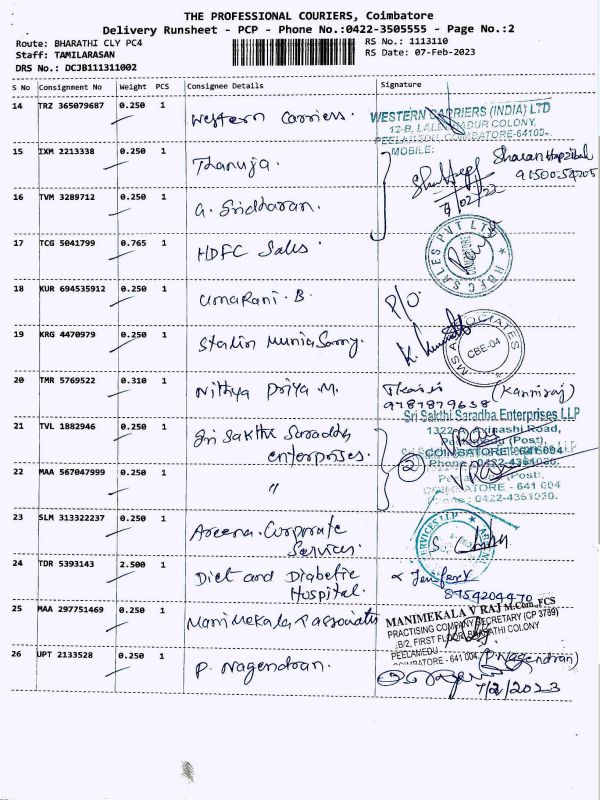 THE PROFESSIONAL COURIERS, Coimbatore
Delivery Runsheet - PCP - Phone No.:0422-3505555 - Page No.:2
Route: BHARATHI CLY PC4
RS No.: 1113110
Staff: TAMILARASAN
RS Date: 07-Feb-2023
DRS No.: DCJB111311002
S No Consignment No Weight PCS Consignee Details Signature
14 TRZ 365079687 0.250 1 Western Carriers.
WESTERN CARRIERS (INDIA) LTD
COLONY,
MOBILE:
15 IXM 2213338 0.250 1 Thanuja.
16 TVM 3289712 0.250 1 a. Sridharan.
17 TCG 5041799 0.765 1 HDFC Sales.
HDFC SALES PVT LTD
18 KUR 694535912 0.250 1 UmaRani. B. P/O.
19 KRG 4470979 0.250 1 Stalin Munia Samy.
CBE-04
20 TMR 5769522 0.310 1 Nithya Priya M.
9787879638
Sri Sakthi Saradha Enterprises LLP
21 TVL 1882946 0.250 1 Sri Sakthi Saradha
enterprises.
COIMBATORE - 641 004
Phone : 0422-4361030.
22 MAA 567047999 0.250 1 "
2
COIMBATORE - 641 004
Phone : 0422-4361030.
23 SLM 313322237 0.250 1 Areena. Corporate
Services.
24 TDR 5393143 2.500 1 Diet and Diabetic
Hospital.
25 MAA 297751469 0.250 1 Manimekala & associates
MANIMEKALA V RAJ M.Com.,FCS
PRACTISING COMPANY SECRETARY (CP 3789)
8/2, FIRST FLOOR, BHARATHI COLONY
PEELAMEDU
COIMBATORE - 641 004
26 UPT 2133528 0.250 1 P. Nagendran.
(P. Nagendran)
7/2/2023